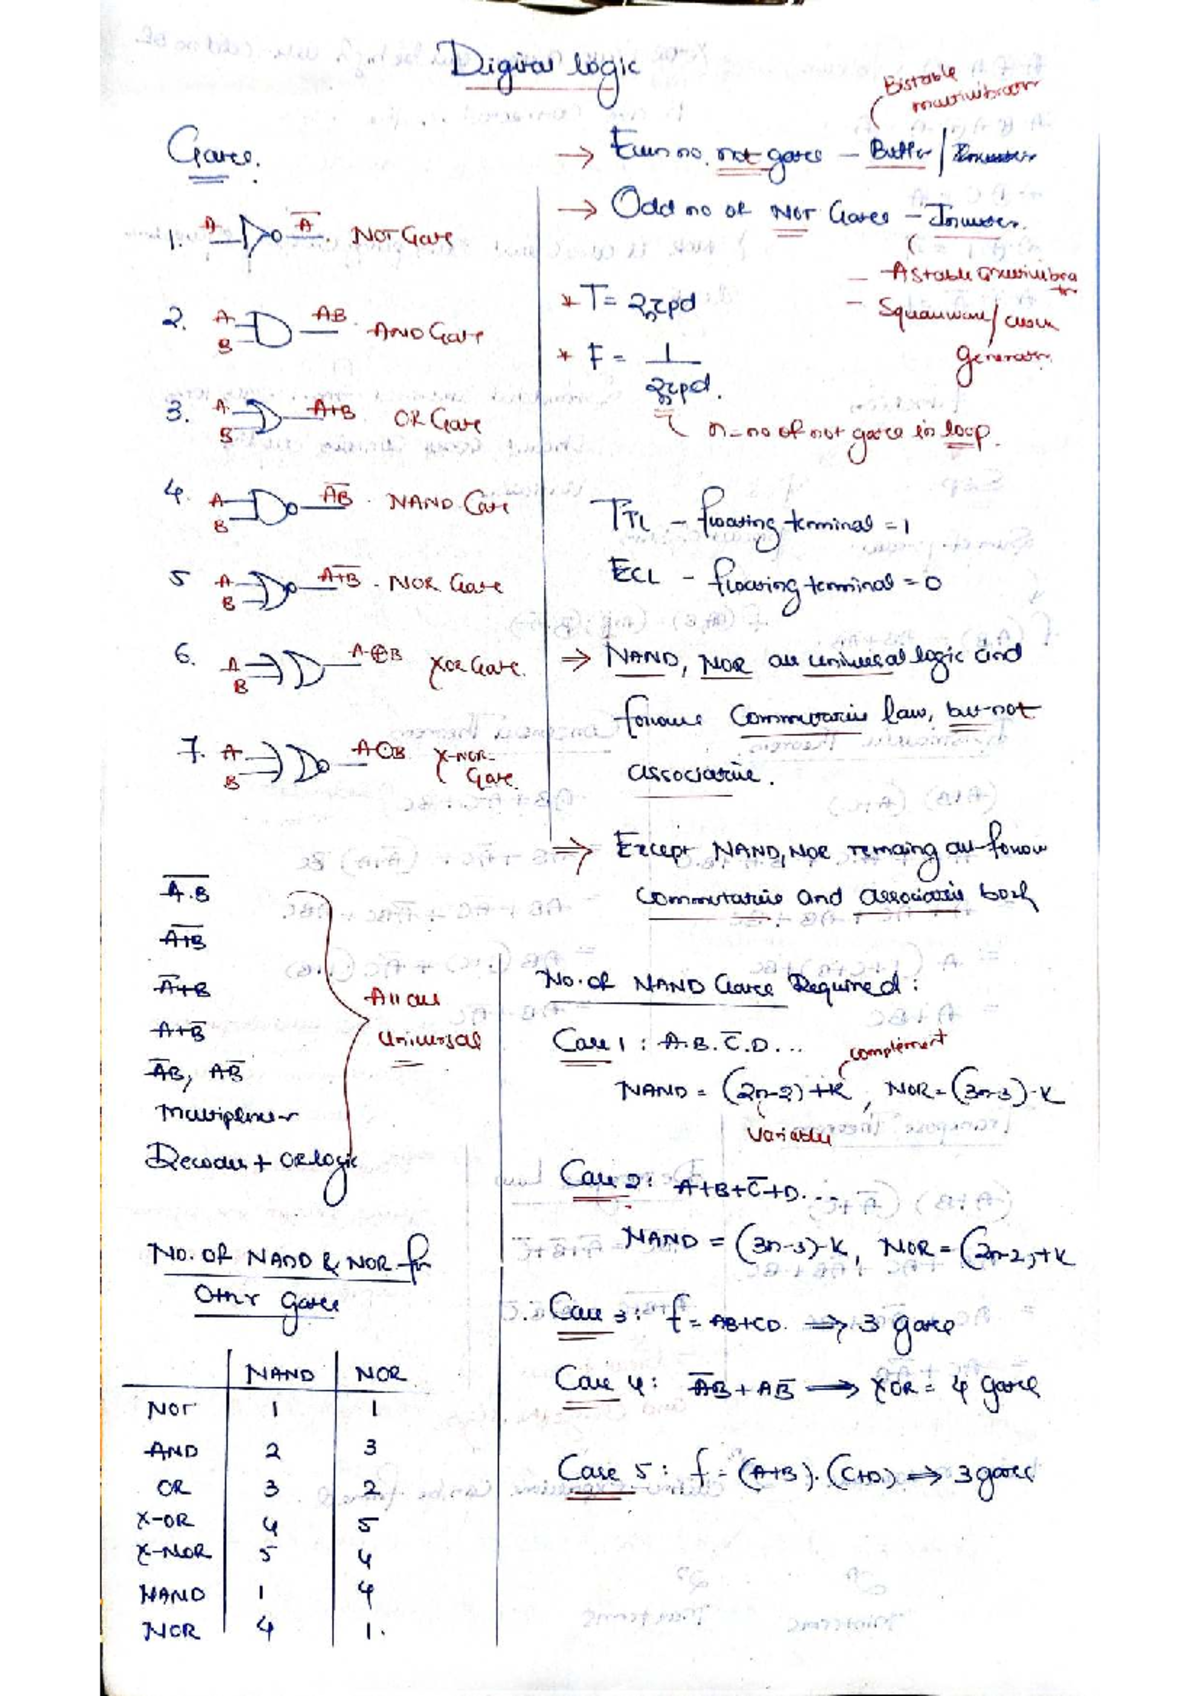 Digital logic
Gates.
1. A A̅ . NOT Gate
2. A B AB . AND Gate
3. A B A+B OR Gate
4. A B A̅B̅ . NAND Gate
5 A B A̅+̅B̅ . NOR Gate
6. A B A⊕B XOR Gate.
7. A B A⊙B X-NOR Gate.
A̅.̅B̅
A̅+̅B̅
A̅+B
A+B̅
A̅B, AB̅
Multiplexer
Decoder + OR logic
All are
Universal
No. of NAND & NOR for
Other gates
NAND NOR
NOT 1 1
AND 2 3
OR 3 2
X-OR 4 5
X-NOR 5 4
NAND 1 4
NOR 4 1.
Bistable
multivibrator
→ Even no. not gates – Buffer /
→ Odd no of NOT Gates – Inverter.
– Astable multivibrator
– Squarewave/ clock
generator.
* T = 2nτpd
* F = 1 / 2nτpd.
n = no of not gates in loop.
TTL – floating terminal = 1
ECL – floating terminal = 0
⇒ NAND, NOR are universal logic and
follows Commutative law, but not
associative.
⇒ Except NAND, NOR remaing all follow
Commutative and associative both
No. of NAND Gates Required :
Case 1 : A.B.C̅.D...
complement
NAND = (2n-2)+K, NOR = (3n-3)-K
Variable
Case 2: A+B+C̅+D...
NAND = (3n-3)-K, NOR = (2n-2)+K
Case 3: f = AB+CD. ⇒ 3 gates
Case 4: A̅B + AB̅ ⇒ XOR = 4 gates
Case 5: f = (A+B).(C+D) ⇒ 3 gates